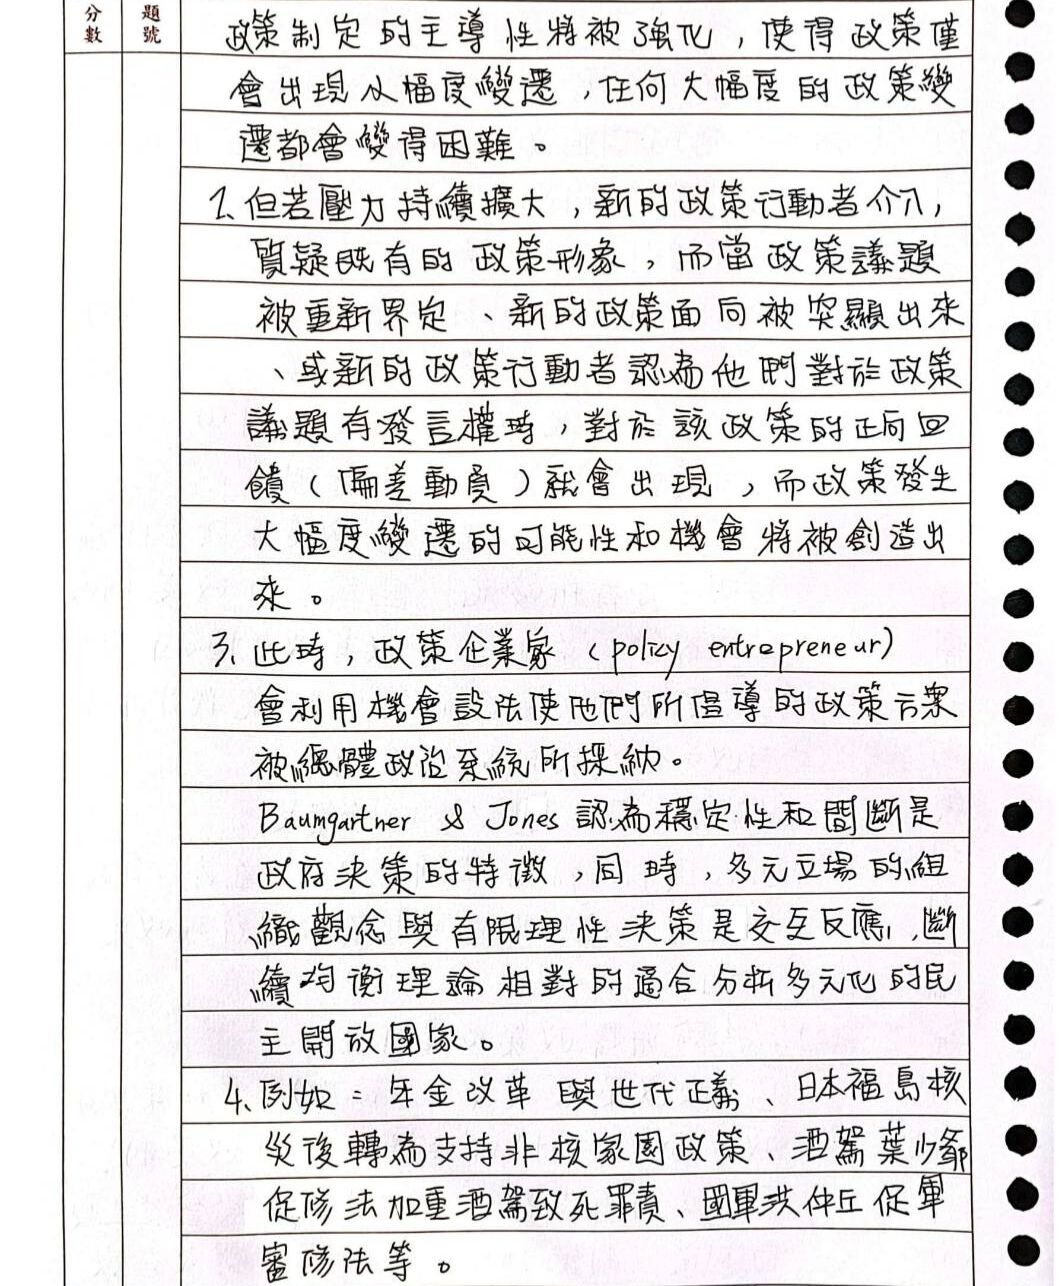 分數 題號
政策制定的主導性將被強化，使得政策僅
會出現小幅度變遷，任何大幅度的政策變
遷都會變得困難。
2、但若壓力持續擴大，新的政策行動者介入，
質疑既有的政策形象，而當政策議題
被重新界定、新的政策面向被突顯出來
、或新的政策行動者認為他們對於政策
議題有發言權時，對於該政策的正向回
饋（偏差動員）就會出現，而政策發生
大幅度變遷的可能性和機會將被創造出
來。
3、此時，政策企業家（policy entrepreneur）
會利用機會設法使他們所倡導的政策方案
被總體政治系統所採納。
Baumgartner & Jones 認為穩定性和間斷是
政府決策的特徵，同時，多元立場的組
織觀念與有限理性決策是交互反應，斷
續均衡理論相對的適合分析多元化的民
主開放國家。
4、例如：年金改革與世代正義、日本福島核
災後轉為支持非核家園政策、酒駕葉少爺
促修法加重酒駕致死罪責、國軍洪仲丘促軍
審修法等。